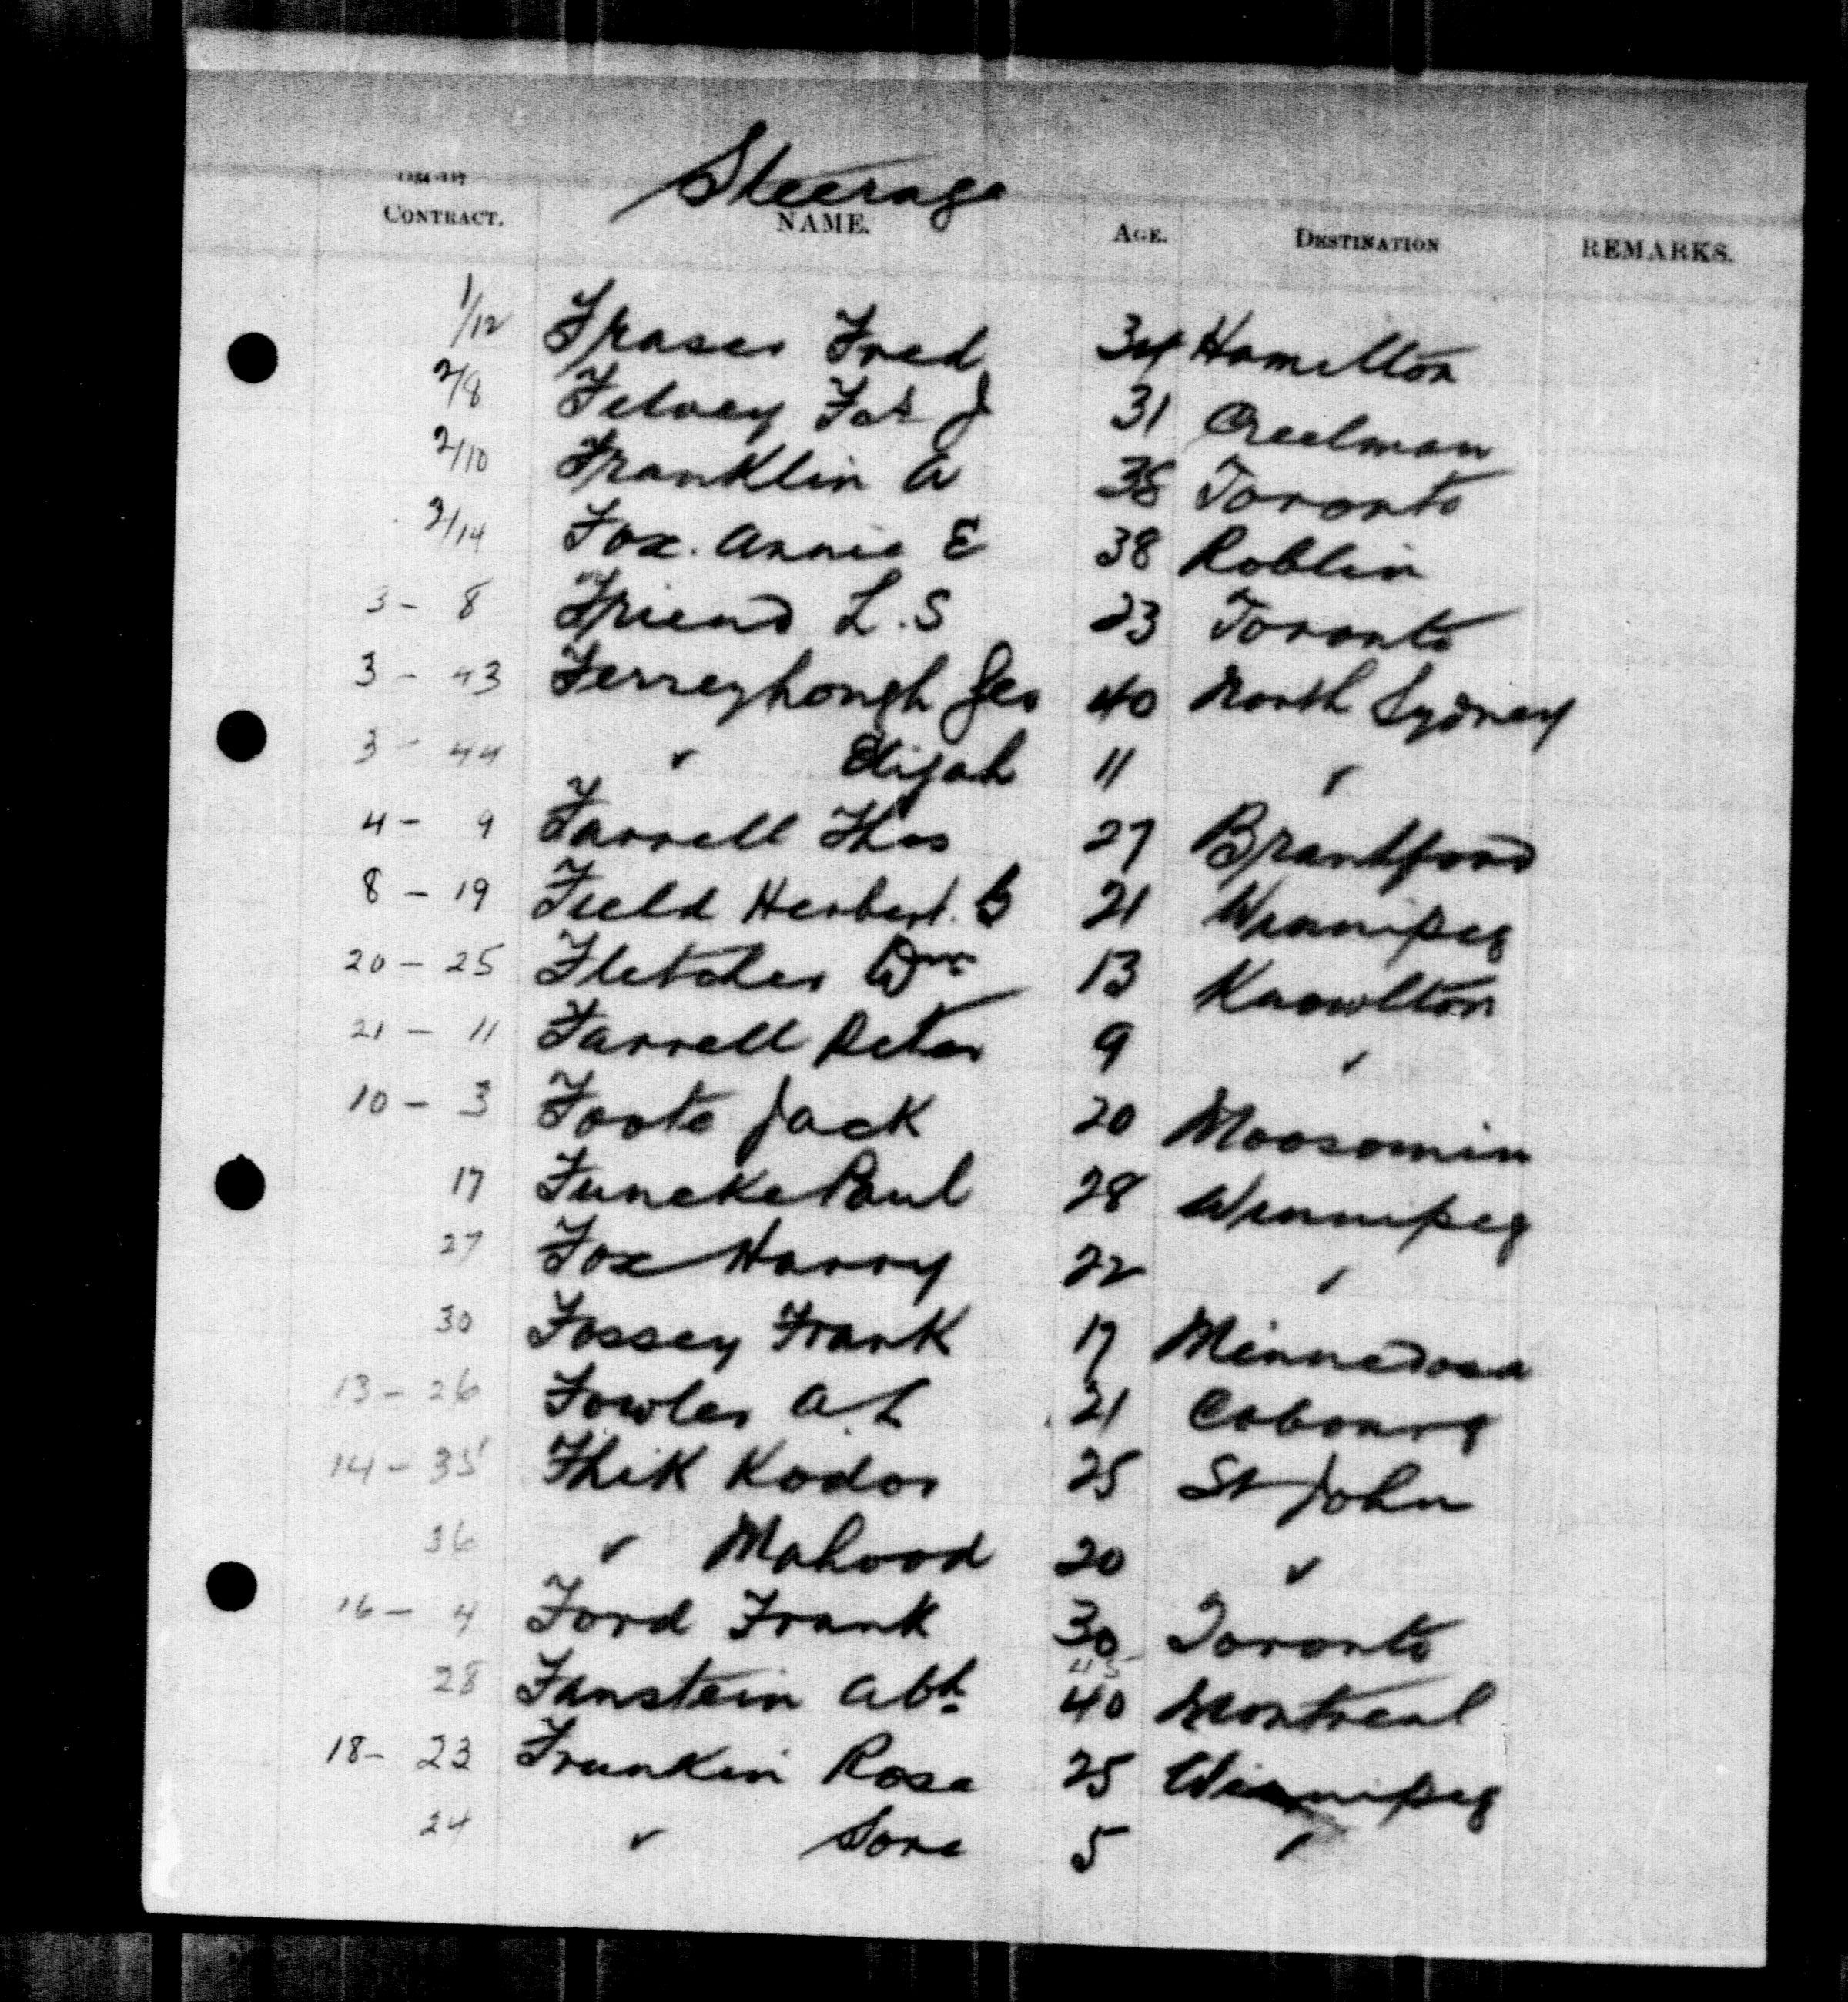 Steerage
CONTRACT. NAME. AGE. DESTINATION REMARKS.
1/12 Fraser Fred 34 Hamilton
2/8 Felvey Fat J 31 Creelman
2/10 Franklin A 38 Toronto
2/14 Fox. Annie E 38 Roblin
3 - 8 Friend L.S 23 Toronto
3 - 43 Ferreyhough Geo 40 North Sydney
3 - 44 " Elijah 11 "
4 - 9 Farrell Thos 27 Brantford
8 - 19 Field Herbert. G 21 Winnipeg
20 - 25 Fletcher Wm 13 Knowlton
21 - 11 Farrell Peter 9 "
10 - 3 Foote Jack 20 Moosomin
17 Funcke Paul 28 Winnipeg
27 Fox Harry 22 "
30 Fossey Frank 17 Minnedosa
13 - 26 Fowler A.L 21 Cobourg
14 - 35 Fhik Kodor 25 St John
36 " Mahood 20 "
16 - 4 Ford Frank 30 Toronto
28 Fanstein Abh. 40 Montreal
18 - 23 Frunkin Rosa 25 Winnipeg
24 " Sore 5 "